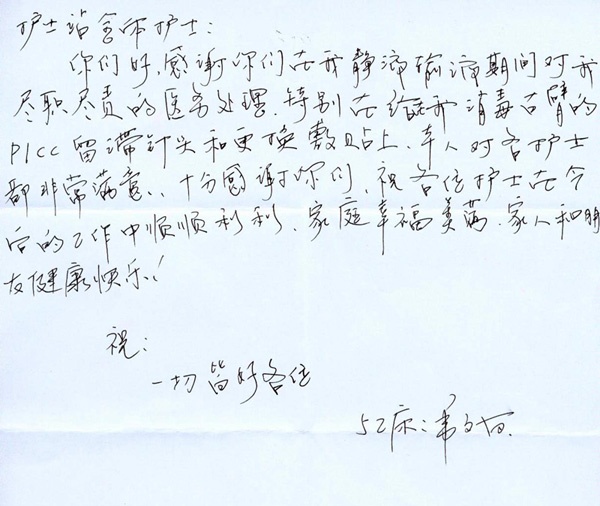 护士站全体护士：
你们好，感谢你们在我静滞输液期间对我
尽职尽责的医务处理，特别在给我消毒右臂的
PICC留滞针头和更换敷贴上，本人对各护士
都非常满意、十分感谢你们，祝各位护士在今
后的工作中顺顺利利，家庭幸福美满，家人和朋
友健康快乐！
祝：
一切皆好各位
52床：